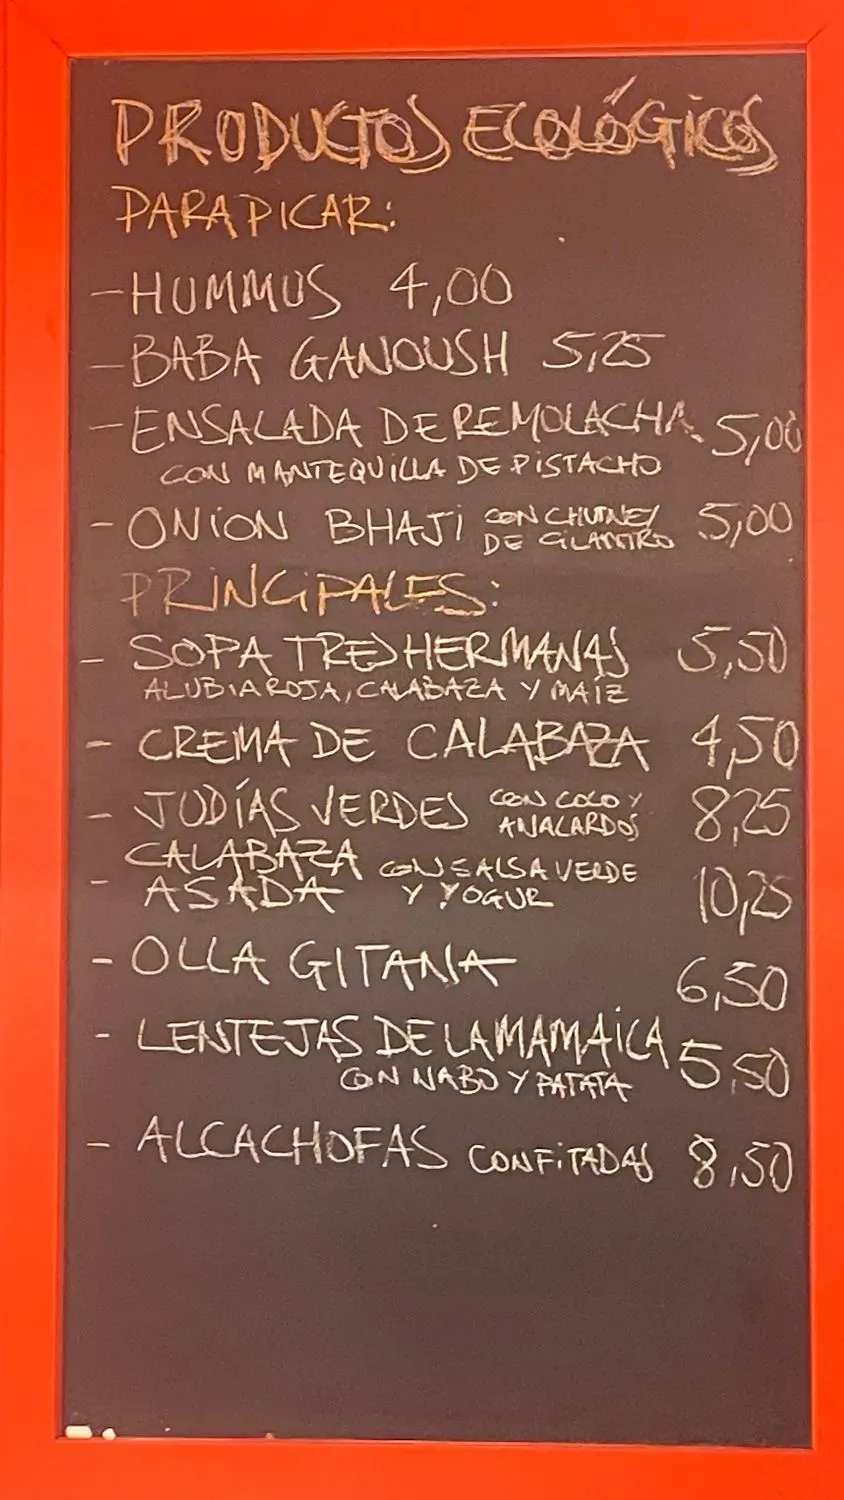 PRODUCTOS ECOLÓGICOS
PARA PICAR:
- HUMMUS 4,00
- BABA GANOUSH 5,25
- ENSALADA DE REMOLACHA 5,00
CON MANTEQUILLA DE PISTACHO
- ONION BHAJI CON CHUTNEY 5,00
DE CILANTRO
PRINCIPALES:
- SOPA TRES HERMANAS 5,50
ALUBIA ROJA, CALABAZA Y MAÍZ
- CREMA DE CALABAZA 4,50
- JUDÍAS VERDES CON COCO Y 8,25
ANACARDOS
CALABAZA CON SALSA VERDE
- ASADA Y YOGUR 10,25
- OLLA GITANA 6,50
- LENTEJAS DE LA MAMAICA 5,50
CON NABO Y PATATA
- ALCACHOFAS CONFITADAS 8,50